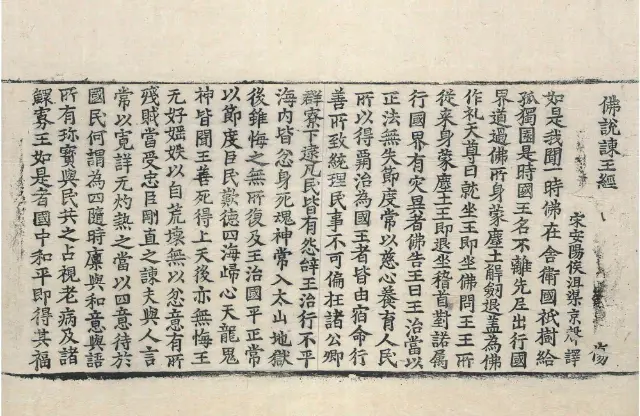 佛說諫王經 傷
宋安陽侯沮渠京聲譯
如是我聞一時佛在舍衛國祇樹給
孤獨園是時國王名不離先尼出行國
界道過佛所身蒙塵土解劒退蓋為佛
作礼天尊曰就坐王即坐佛問王王所
從來身蒙塵土王即退坐稽首對諾屬
行國界有灾異者佛告王曰王治當以
正法無失節度常以慈心養育人民
所以得霸治為國王者皆由宿命行
善所致統理民事不可偏枉諸公卿
群寮下逮凡民皆有怨辭王治行不平
海內皆忿身死魂神常入太山地獄
後雖悔之無所復及王治國平正常
以節度臣民歎德四海歸心天龍鬼
神皆聞王善死得上天後亦無悔王
无好婬妷以自荒壞無以忿意有所
殘賊當受忠臣剛直之諫夫與人言
常以寬詳无灼熱之當以四意待於
國民何謂為四隨時廩與和意與語
所有珎寶與民共之占視老病及諸
鰥寡王如是者國中和平即得其福